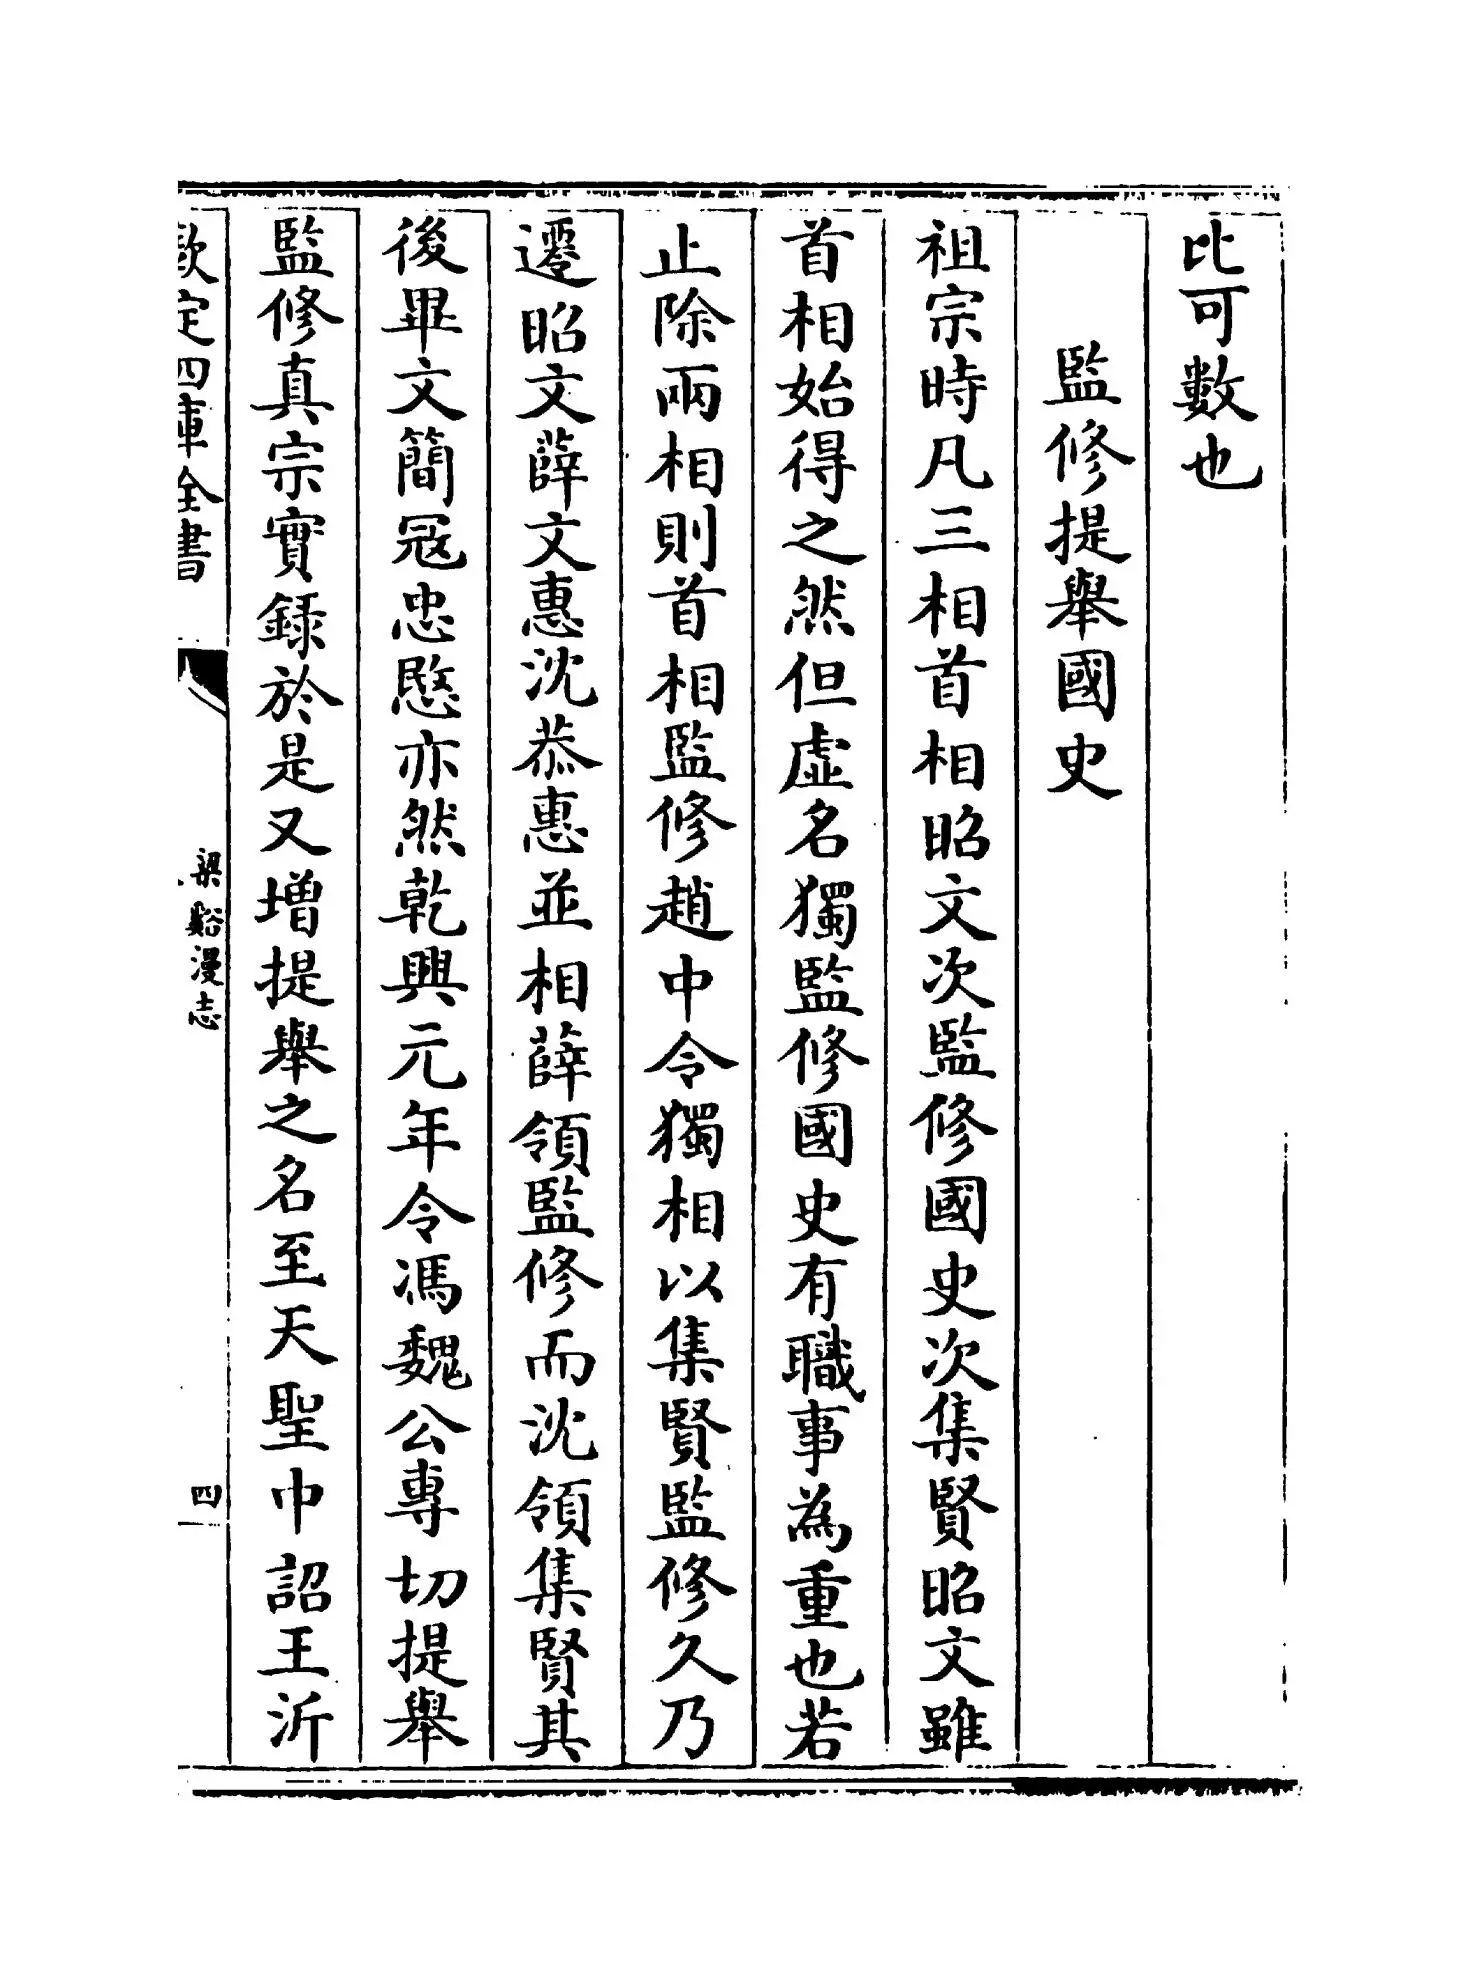 比可數也
監修提舉國史
祖宗時凡三相首相昭文次監修國史次集賢昭文雖
首相始得之然但虛名獨監修國史有職事為重也若
止除兩相則首相監修趙中令獨相以集賢監修久乃
遷昭文薛文惠沈恭惠並相薛領監修而沈領集賢其
後畢文簡冦忠愍亦然乾興元年令馮魏公專切提舉
監修真宗實録於是又增提舉之名至天聖中詔王沂
欽定四庫全書
梁谿漫志
四